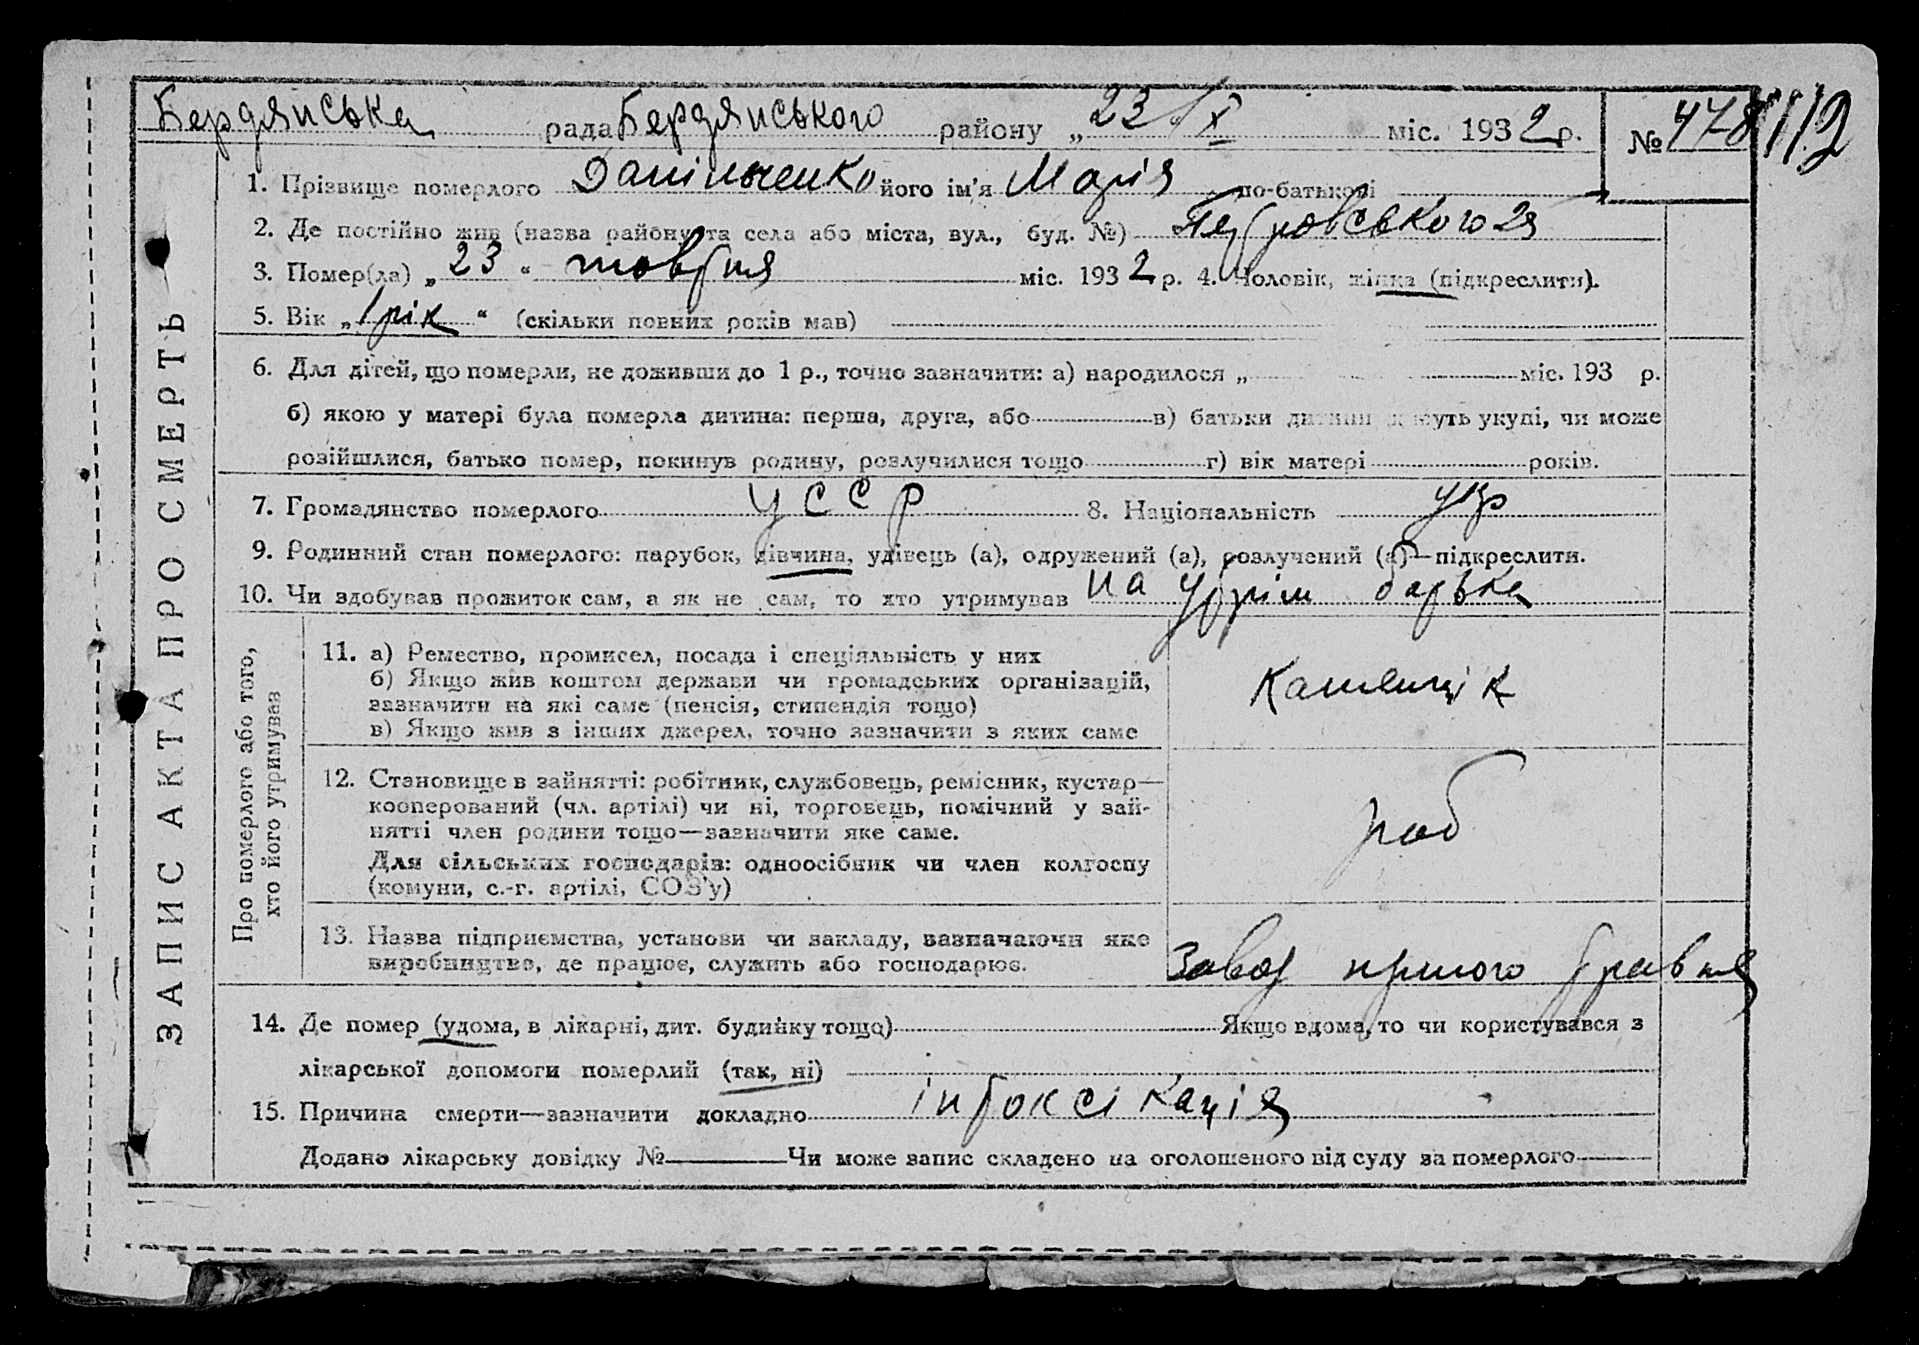 Бердянська рада Бердянського району „ 23 “ X міс. 1932 р. № 478 112
1. Прізвище померлого Данільченко його ім'я Марія по-батькові
2. Де постійно жив (назва району та села або міста, вул., буд. №) Петровського 25
3. Помер(ла) „ 23 “ жовтня міс. 1932 р. 4. Чоловік, жінка (підкреслити).
5. Вік „ 1 рік “ (скільки повних років мав)
6. Для дітей, що померли, не доживши до 1 р., точно зазначити: а) народилося „ міс. 193 р.
б) якою у матері була померла дитина: перша, друга, або в) батьки дитини живуть укупі, чи може
розійшлися, батько помер, покинув родину, розлучилися тощо г) вік матері років.
7. Громадянство померлого УССР 8. Національність укр
9. Родинний стан померлого: парубок, дівчина, удівець (а), одружений (а), розлучений (а)—підкреслити.
10. Чи здобував прожиток сам, а як не сам, то хто утримував на утрім батька
ЗАПИС АКТА ПРО СМЕРТЬ
Про померлого або того,
хто його утримував
11. а) Ремество, промисел, посада і спеціяльність у них
б) Якщо жив коштом держави чи громадських організацій,
зазначити на які саме (пенсія, стипендія тощо)
в) Якщо жив з інших джерел, точно зазначити з яких саме
Каменщік
12. Становище в зайнятті: робітник, службовець, ремісник, кустар—
кооперований (чл. артілі) чи ні, торговець, помічний у зай-
нятті член родини тощо—зазначити яке саме.
Для сільських господарів: одноосібник чи член колгоспу
(комуни, с.-г. артілі, СОЗ'у)
роб
13. Назва підприємства, установи чи закладу, зазначаючи яке
виробництво, де працює, служить або господарює.
Завод
14. Де помер (удома, в лікарні, дит. будинку тощо) Якщо вдома, то чи користувався з
лікарської допомоги померлий (так, ні)
15. Причина смерти—зазначити докладно інтоксікація
Додано лікарську довідку № Чи може запис складено на оголошеного від суду за померлого